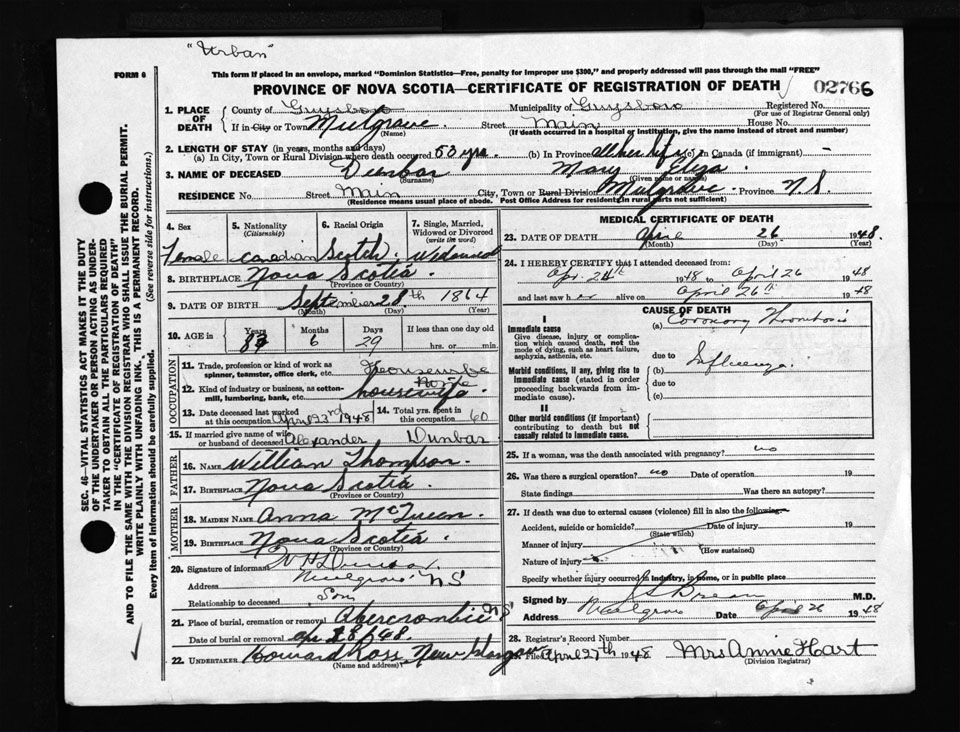 "Urban"
FORM 6
This form if placed in an envelope, marked "Dominion Statistics—Free, penalty for improper use $300," and properly addressed will pass through the mail "FREE"
PROVINCE OF NOVA SCOTIA—CERTIFICATE OF REGISTRATION OF DEATH 02766
1. PLACE OF DEATH County of Guysboro Municipality of Guysboro Registered No.
(For use of Registrar General only)
If in City or Town Mulgrave Street Main House No.
(Name) (If death occurred in a hospital or institution, give the name instead of street and number)
2. LENGTH OF STAY (in years, months and days)
(a) In City, Town or Rural Division where death occurred 53 yrs. (b) In Province all her life (c) In Canada (if immigrant) -
3. NAME OF DECEASED Dunbar Mary Eliza
(Surname) (Given name or names)
RESIDENCE No. Street Main City, Town or Rural Division Mulgrave. Province N.S.
(Residence means usual place of abode. Post Office Address for residents in rural parts not sufficient)
4. Sex 5. Nationality (Citizenship) 6. Racial Origin 7. Single, Married, Widowed or Divorced (write the word)
Female Canadian Scotch. Widowed
8. BIRTHPLACE Nova Scotia
(Province or Country)
9. DATE OF BIRTH September 28th 1864
(Month) (Day) (Year)
10. AGE in Years Months Days If less than one day old
83 6 29 hrs. or min.
OCCUPATION
11. Trade, profession or kind of work as spinner, teamster, office clerk, etc. Housewife
12. Kind of industry or business, as cotton-mill, lumbering, bank, etc. housewife
13. Date deceased last worked at this occupation April 23rd 1948 14. Total yrs. spent in this occupation 60
15. If married give name of wife or husband of deceased Alexander Dunbar
FATHER
16. NAME William Thompson.
17. BIRTHPLACE Nova Scotia.
(Province or Country)
MOTHER
18. MAIDEN NAME Anna McQueen.
19. BIRTHPLACE Nova Scotia.
(Province or Country)
20. Signature of informant Dunbar.
Address Mulgrave NS
Relationship to deceased Son
21. Place of burial, cremation or removal Abercrombie NS
Date of burial or removal apr 28/48.
22. UNDERTAKER Howard Ross New Glasgow
(Name and address)
MEDICAL CERTIFICATE OF DEATH
23. DATE OF DEATH April 26 1948.
(Month) (Day) (Year)
24. I HEREBY CERTIFY that I attended deceased from:
Apr. 24th 1948 to April 26 1948
and last saw her alive on April 26th 1948
CAUSE OF DEATH
I
Immediate cause (a) Coronary Thrombosis
Give disease, injury or complication which caused death, not the mode of dying, such as heart failure, asphyxia, asthenia, etc.
due to
(b) Influenza.
Morbid conditions, if any, giving rise to immediate cause (stated in order proceeding backwards from immediate cause).
due to
(c)
II
Other morbid conditions (if important) contributing to death but not causally related to immediate cause.
25. If a woman, was the death associated with pregnancy? no
26. Was there a surgical operation? no Date of operation 19
State findings Was there an autopsy?
27. If death was due to external causes (violence) fill in also the following.
Accident, suicide or homicide? Date of injury 19
(State which)
Manner of injury
(How sustained)
Nature of injury
Specify whether injury occurred in industry, in home, or in public place
Signed by M.D.
Address Mulgrave Date April 26 1948
28. Registrar's Record Number
Filed April 27th 1948 Mrs Annie Hart
(Division Registrar)
SEC. 46—VITAL STATISTICS ACT MAKES IT THE DUTY
OF THE UNDERTAKER OR PERSON ACTING AS UNDER-
TAKER TO OBTAIN ALL THE PARTICULARS REQUIRED
IN THE "CERTIFICATE OF REGISTRATION OF DEATH"
AND TO FILE THE SAME WITH THE DIVISION REGISTRAR WHO SHALL ISSUE THE BURIAL PERMIT.
WRITE PLAINLY WITH UNFADING INK. THIS IS A PERMANENT RECORD.
Every item of information should be carefully supplied. (See reverse side for instructions.)